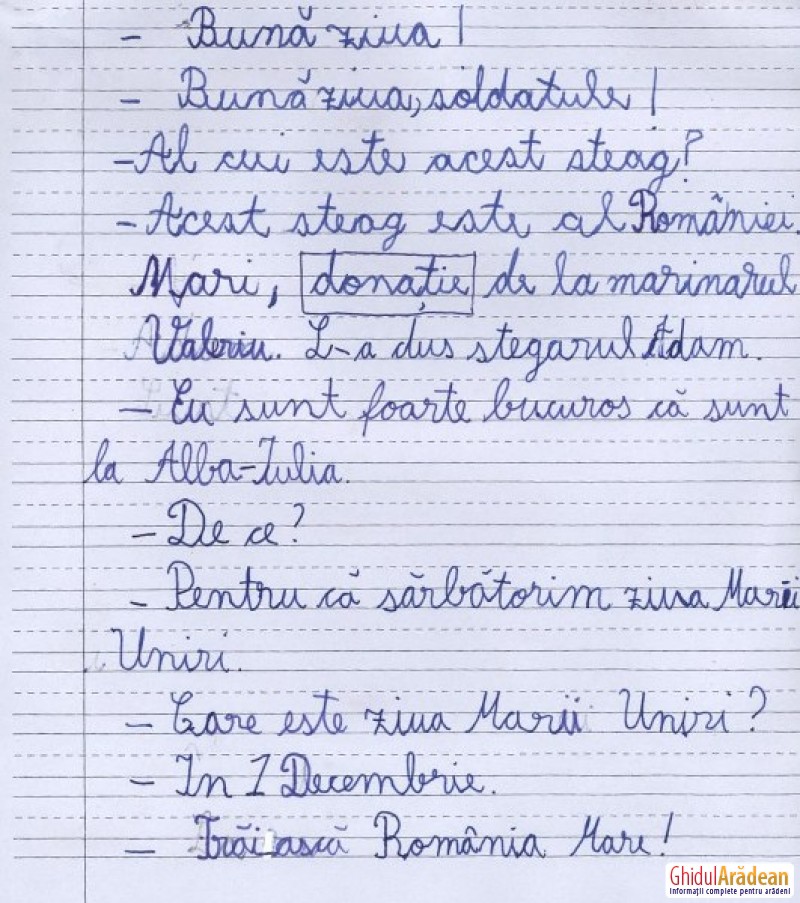 - Bună ziua!
- Bună ziua, soldatule!
- Al cui este acest steag?
- Acest steag este al României
Mari, donație de la marinarul
Valeriu. L-a dus stegarul Adam.
- Eu sunt foarte bucuros că sunt
la Alba-Iulia.
- De ce?
- Pentru că sărbătorim ziua Marii
Uniri.
- Care este ziua Marii Uniri?
- In 1 Decembrie.
- Trăiască România Mare!
GhidulArădean
Informații complete pentru arădeni